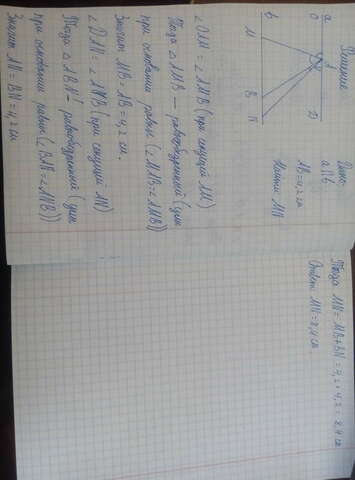 Решение
Дано:
a || b
AB=4,2 см
Найти MN
a
b
O
D
M
B
N
∠OAM = ∠AMB (при секущей AM)
Тогда △AMB — равнобедренный (углы
при основании равны (∠MAB=∠AMB))
Значит MB=AB=4,2 см.
∠DAN = ∠ANB (при секущей AN)
Тогда △ABN - равнобедренный (углы
при основании равны (∠BAN=∠ANB))
Значит AB=BN=4,2 см
Тогда MN=MB+BN=4,2+4,2=8,4 см
Ответ: MN=8,4 см